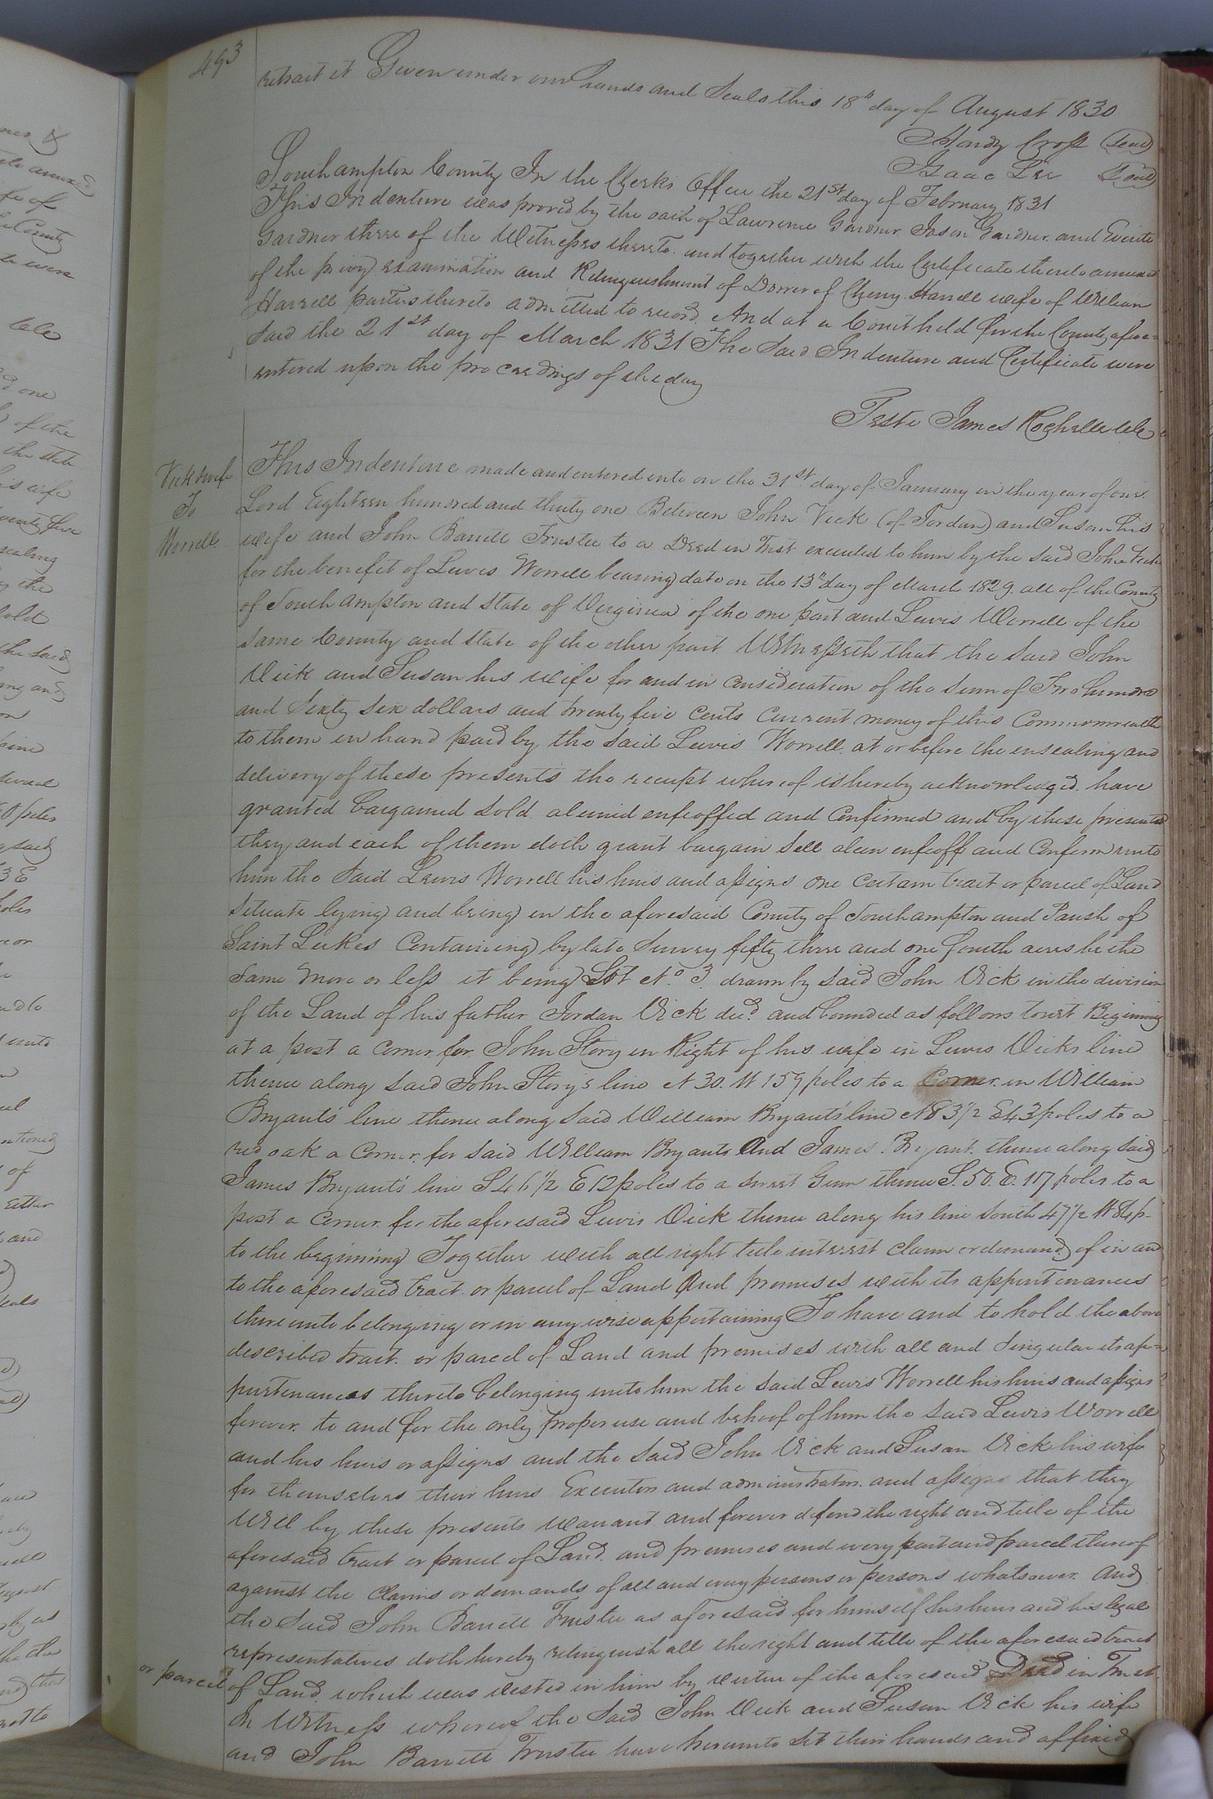 493
retract it Given under our hands and Seals this 18th day of August 1830
Hardy Cross (Seal)
Isaac Lee (Seal)
Southampton County In the Clerks Office the 21st day of February 1831
This Indenture was proved by the oath of Lawrence Gardner Jason Gardner and
Gardner three of the Witnesses thereto and together with the Certificate thereto annexed
of the privy examination and Relinquishment of Dower of Cherry Harrell wife of William
Harrell parties thereto admitted to record. And at a Court held for the County afore-
said the 21st day of March 1831 The Said Indenture and Certificate were
entered upon the proceedings of the day
Teste James Rochelle Clk
Vick & wife
To
Worrell
This Indenture made and entered into on the 31st day of January in the year of our
Lord Eighteen hundred and thirty one Between John Vick (of Jordan) and Susan his
wife and John Barrett Trustee to a Deed in Trust executed to him by the said John Vick
for the benefit of Lewis Worrell bearing date on the 13th day of March 1829. all of the County
of Southampton and State of Virginia of the one part and Lewis Worrell of the
same County and state of the other part Witnesseth that the Said John
Vick and Susan his wife for and in Consideration of the Sum of Two hundred
and Sixty Six dollars and twenty five cents Current money of this Commonwealth
to them in hand paid by the Said Lewis Worrell at or before the ensealing and
delivery of these presents the receipt whereof is hereby acknowledged. have
granted bargained Sold aliened enfeoffed and Confirmed and by these presents
they and each of them doth grant bargain Sell alien enfeoff and Confirm unto
him the Said Lewis Worrell his heirs and assigns one Certain tract or parcel of Land
Situate lying and being in the aforesaid County of Southampton and Parish of
Saint Lukes Containing by late Survey fifty three and one fourth acres be the
Same more or less it being Lot No 3. drawn by said John Vick in the division
of the Land of his father Jordan Vick decd. and bounded as follows towit Beginning
at a post a Corner for John Story in Right of his wife in Lewis Vicks line
thence along Said John Story's line N 30. W 159 poles to a Corner in William
Bryants' line thence along Said William Bryants' line N 83 1/2 E 43 poles to a
red oak a Corner for Said William Bryants And James Bryant. thence along Said
James Bryants' line S 46 1/2 E 12 poles to a sweet Gum thence S. 50. E. 117 poles to a
post a Corner for the aforesaid Lewis Vick thence along his line South 47 1/2 W 86 p-
to the beginning Together with all right title interest claim or demand of in and
to the aforesaid tract or parcel of Land And premises with its appurtenances
thereunto belonging or in any wise appertaining To have and to hold the above
described tract. or parcel of Land and premises with all and Singular its ap-
purtenances thereto belonging unto him the Said Lewis Worrell his heirs and assigns
forever. to and for the only proper use and behoof of him the Said Lewis Worrell
and his heirs or assigns and the Said John Vick and Susan Vick his wife
for themselves their heirs Executors and administrators. and assigns that they
Will by these presents warrant and forever defend the right and title of the
aforesaid tract or parcel of Land. and premises and every part and parcel thereof
against the Claims or demands of all and every persons or persons whatsoever. And
the Said John Barrett Trustee as aforesaid for himself his heirs and his legal
representatives doth hereby relinquish all the right and title of the aforesaid tract
or parcel of Land, which was vested in him by virtue of the aforesaid Deed in Trust
In Witness whereof the Said John Vick and Susan Vick his wife
and John Barrett Trustee have hereunto Set their hands and affixed